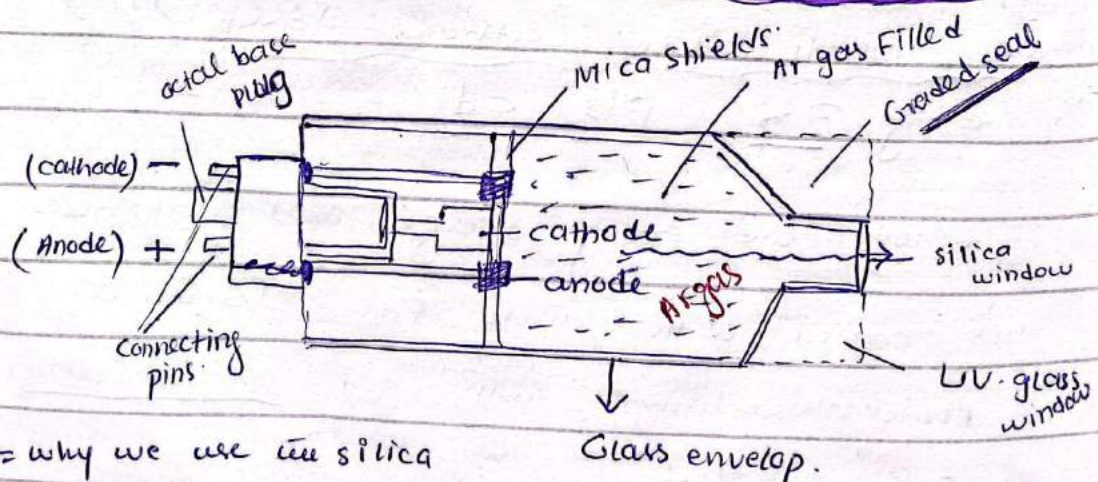 octal base
plug
Mica Shields.
Ar gas Filled
Graded seal
(cathode) -
(Anode) +
cathode
anode
Ar gas
silica
window
connecting
pins.
UV. glass
window
Glass envelop.
= why we use silica